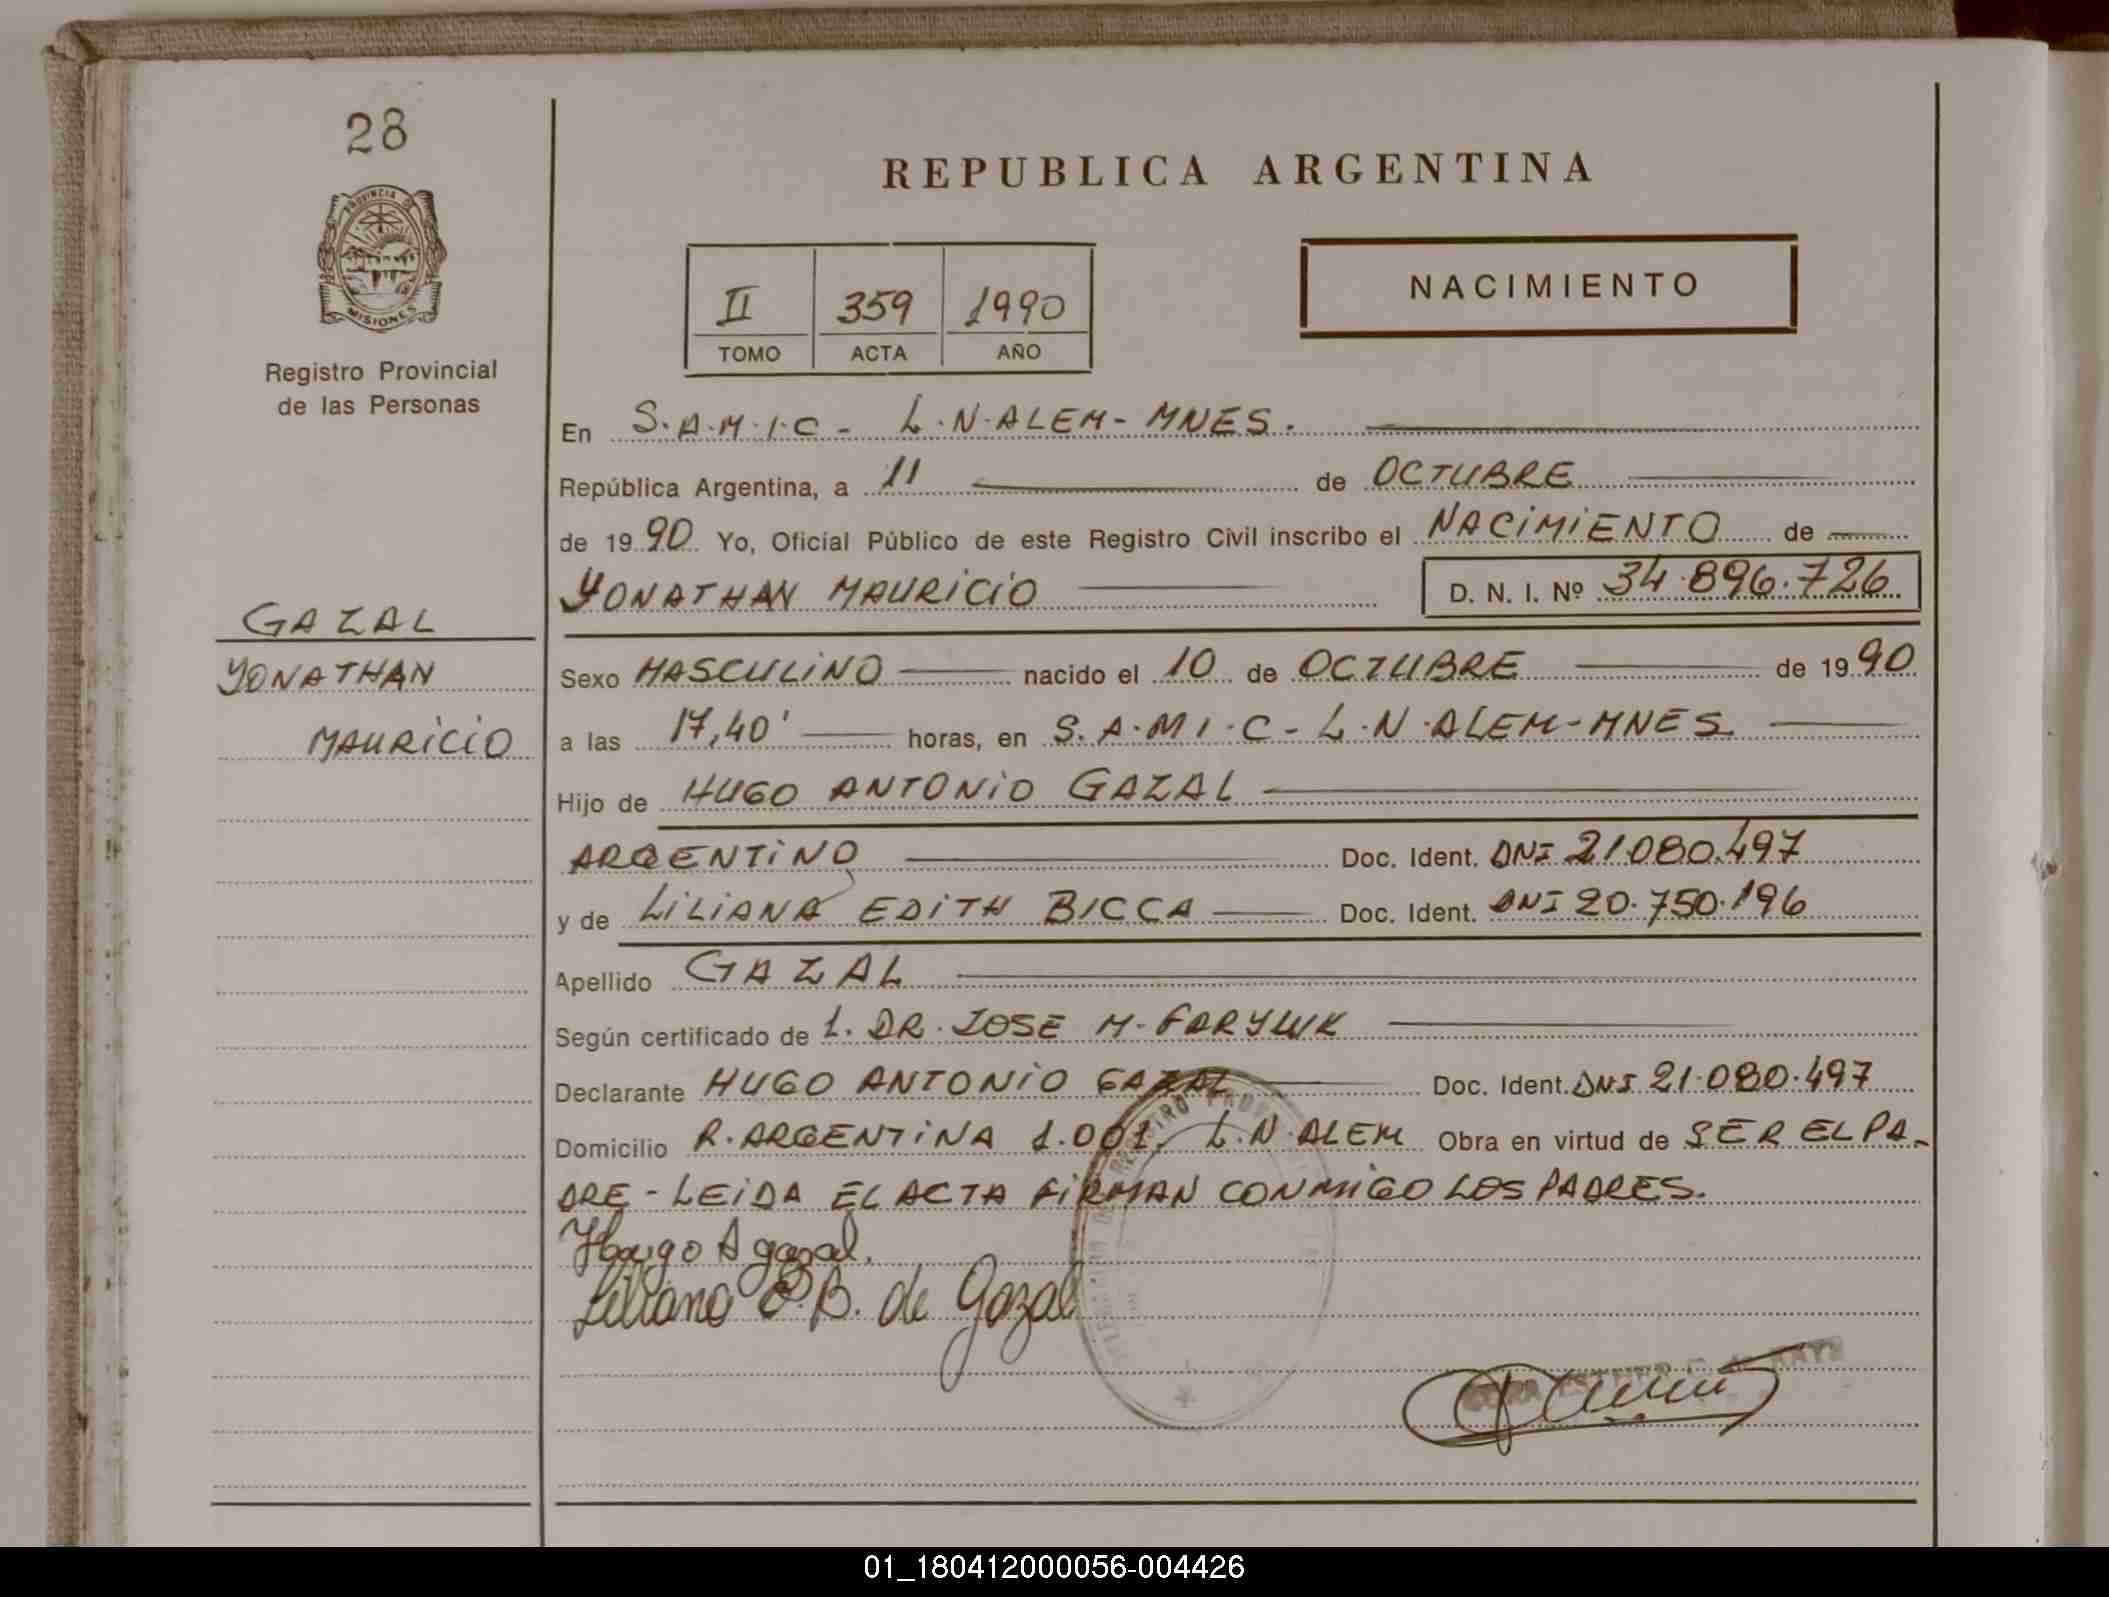 28
PROVINCIA DE
MISIONES
Registro Provincial
de las Personas
GAZAL
YONATHAN
MAURICIO
REPUBLICA ARGENTINA
II 359 1990
TOMO ACTA AÑO
NACIMIENTO
En S.A.M.I.C - L.N.ALEM - MNES.
República Argentina, a 11 de OCTUBRE
de 1990 Yo, Oficial Público de este Registro Civil inscribo el NACIMIENTO de
YONATHAN MAURICIO D. N. I. Nº 34.896.726
Sexo MASCULINO nacido el 10 de OCTUBRE de 1990
a las 17,40' horas, en S.A.M.I.C - L.N.ALEM - MNES
Hijo de HUGO ANTONIO GAZAL
ARGENTINO Doc. Ident. DNI 21.080.497
y de LILIANA EDITH BICCA Doc. Ident. DNI 20.750.196
Apellido GAZAL
Según certificado de 1. DR. JOSE M.
Declarante HUGO ANTONIO GAZAL Doc. Ident. DNI 21.080.497
Domicilio R. ARGENTINA 1.001, L.N.ALEM Obra en virtud de SER EL PA-
DRE - LEIDA EL ACTA FIRMAN CONMIGO LOS PADRES.
Hugo A gazal.
Liliana E.B. de Gazal
01_180412000056-004426